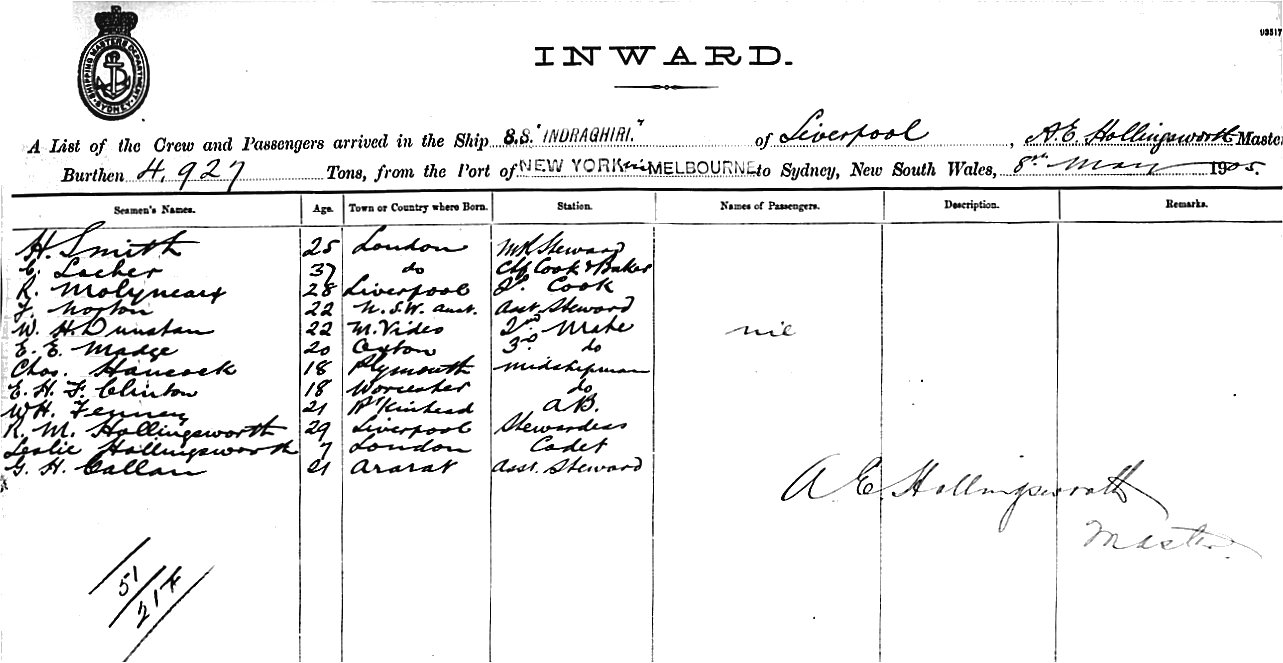 SHIPPING MASTERS DEPARTMENT. SYDNEY.
93517
INWARD.
A List of the Crew and Passengers arrived in the Ship S.S. "INDRAGHIRI." of Liverpool, A.E. Hollingsworth Master
Burthen 4,927 Tons, from the Port of NEW YORK via MELBOURNE to Sydney, New South Wales, 8th May 1905.
Seamen's Names. Age. Town or Country where Born. Station. Names of Passengers. Description. Remarks.
H. Smith 25 London Steward
E. Locher 37 do Chf Cook & Baker
R. Molyneaux 28 Liverpool 2d. Cook
J. Norton 22 N.S.W. Aust. Asst. Steward
W. H. Dunstan 22 M. Video 2nd Mate nil
E. E. Madge 20 Oxton 3rd do
Chas. Hancock 18 Plymouth Midshipman
E. H. F. Clinton 18 Worcester do
W H. Fenney 21 A.B.
R. M. Hollingsworth 29 Liverpool Stewardess
Leslie Hollingsworth 7 London Cadet
G. H. Callan 21 Ararat Asst. Steward
A E. Hollingsworth
Master.
51
217